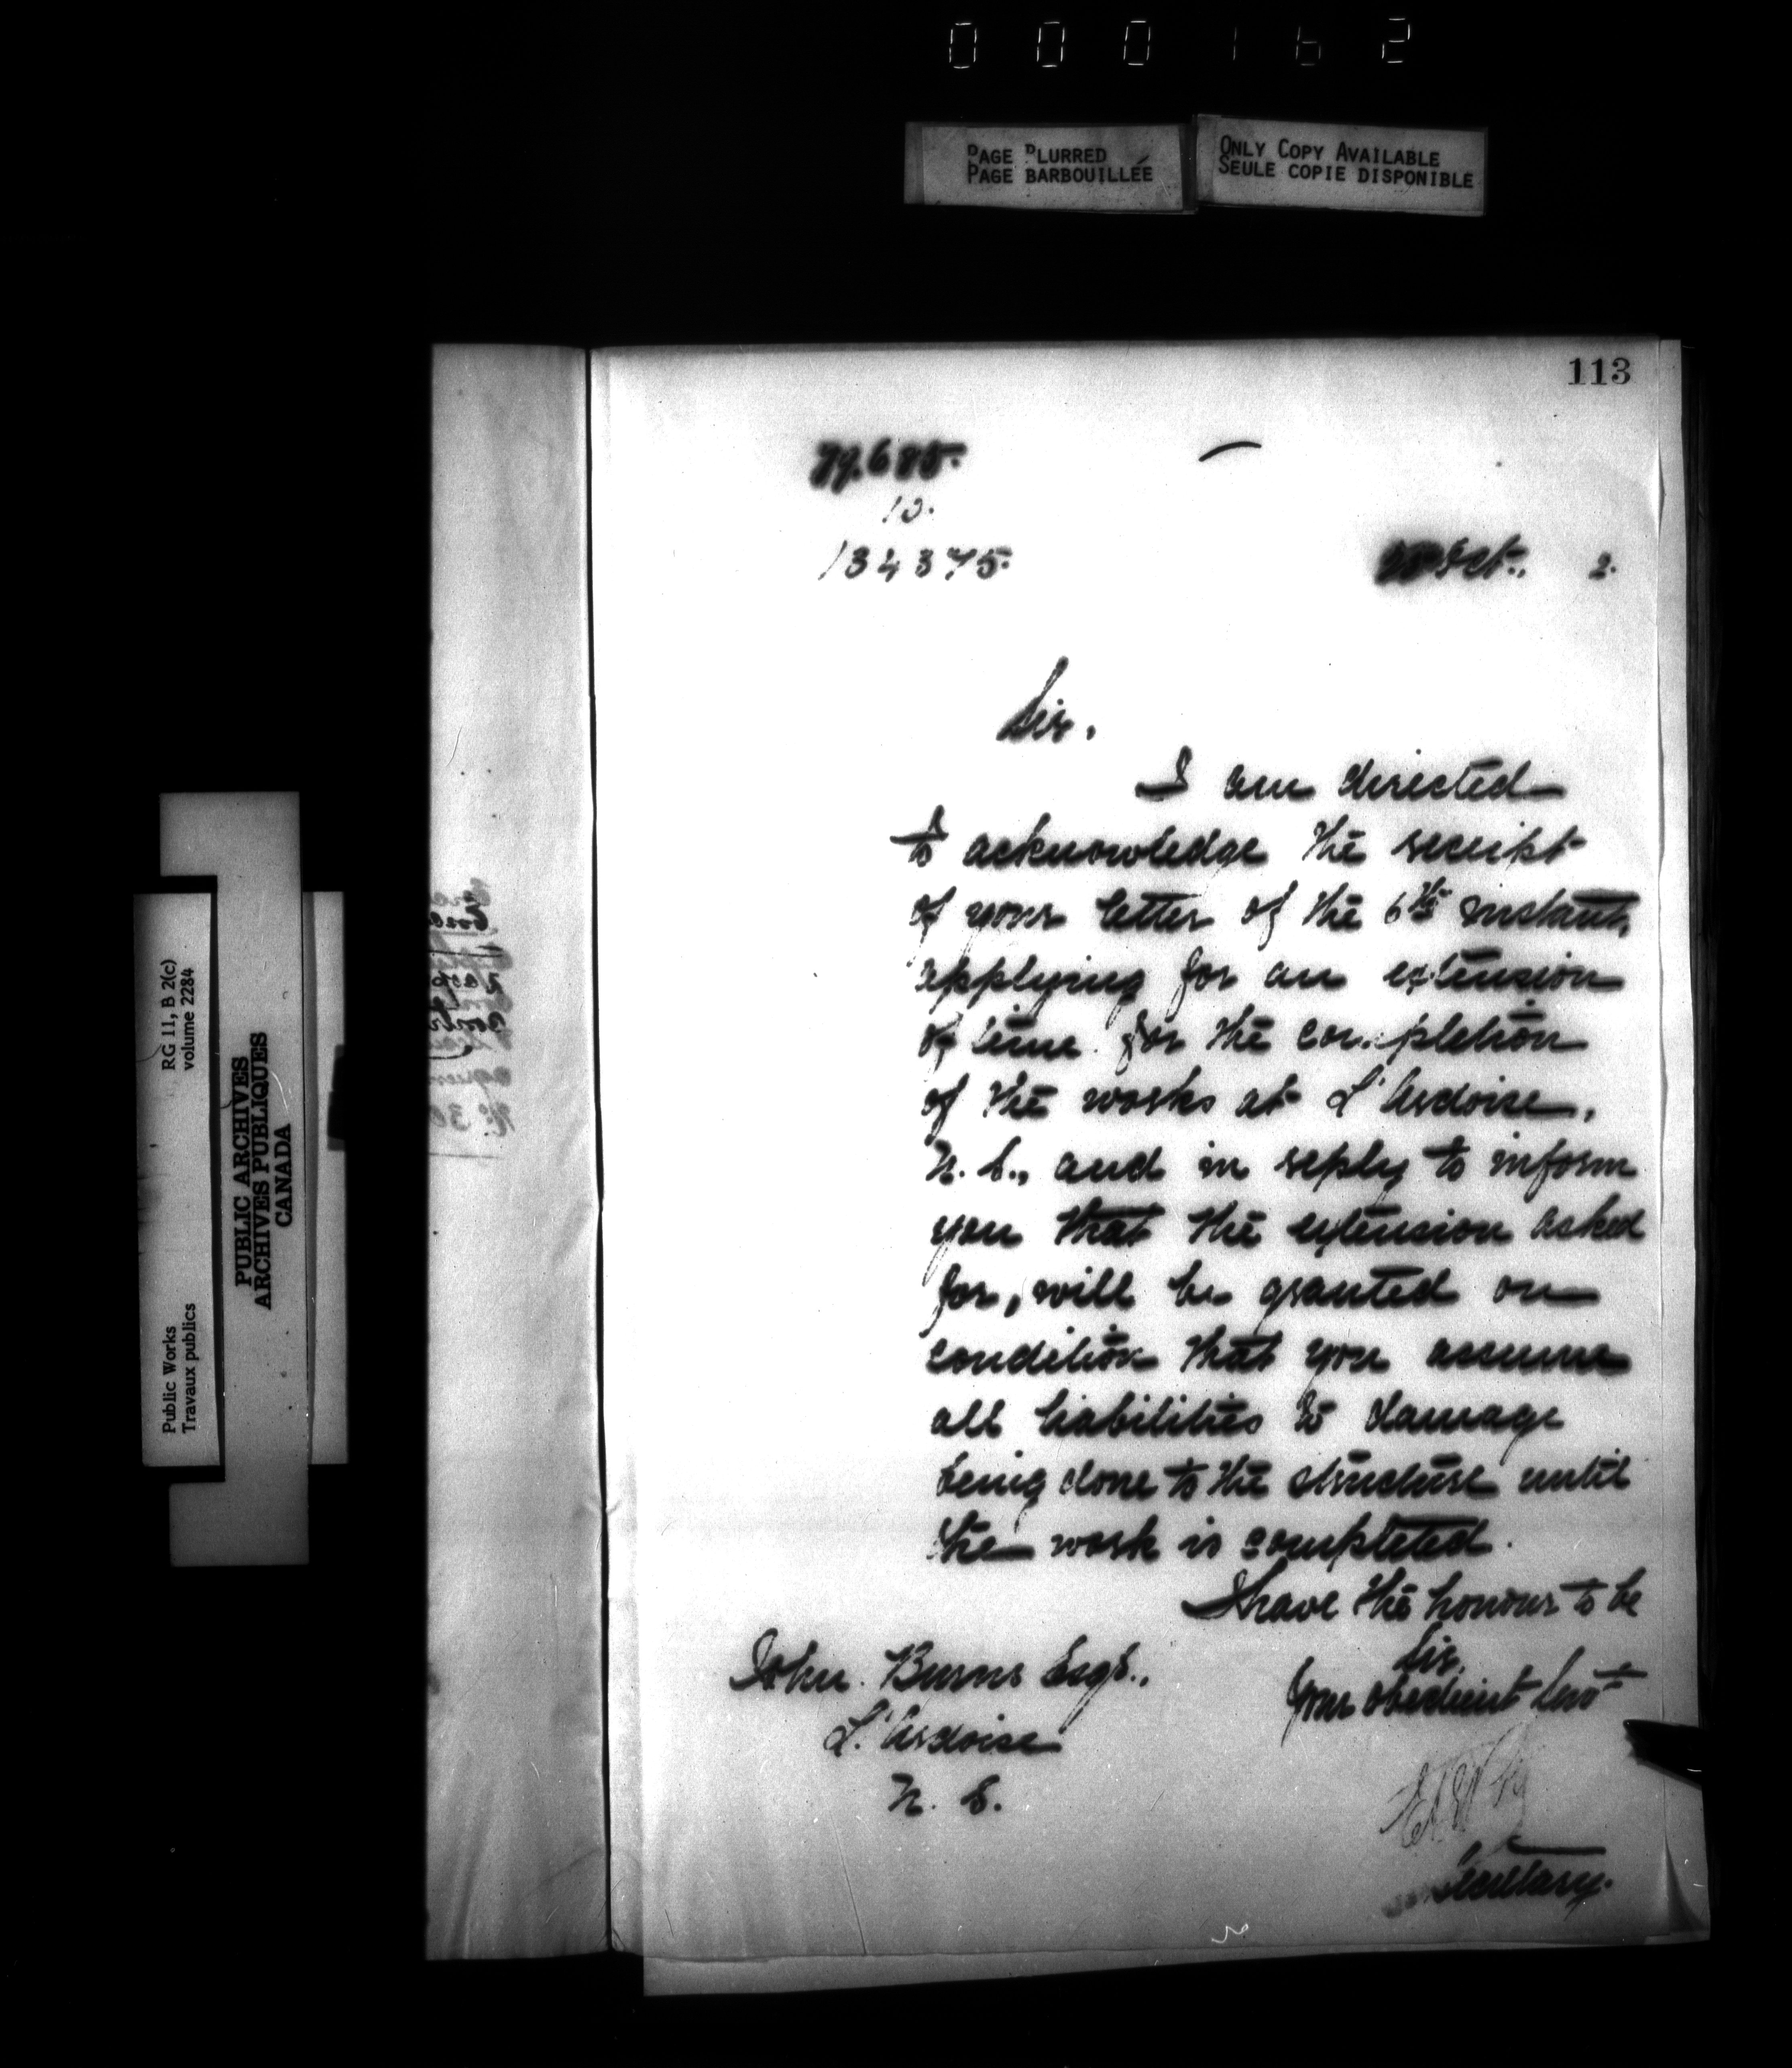 000162
PAGE BLURRED
PAGE BARBOUILLÉE
ONLY COPY AVAILABLE
SEULE COPIE DISPONIBLE
113
79.685.
10.
134375.
Oct., 2.
Sir,
I am directed
to acknowledge the receipt
of your letter of the 6th instant,
applying for an extension
of time for the completion
of the works at L'Ardoise,
N. S., and in reply to inform
you that the extension asked
for, will be granted on
condition that you assume
all liabilities to damage
being done to the structure until
the work is completed.
I have the honour to be
Sir,
Your obedient Servt
John Burns Esqr.,
L'Ardoise
N. S.
Secretary.
RG 11, B 2(c)
volume 2284
Public Works
Travaux publics
PUBLIC ARCHIVES
ARCHIVES PUBLIQUES
CANADA